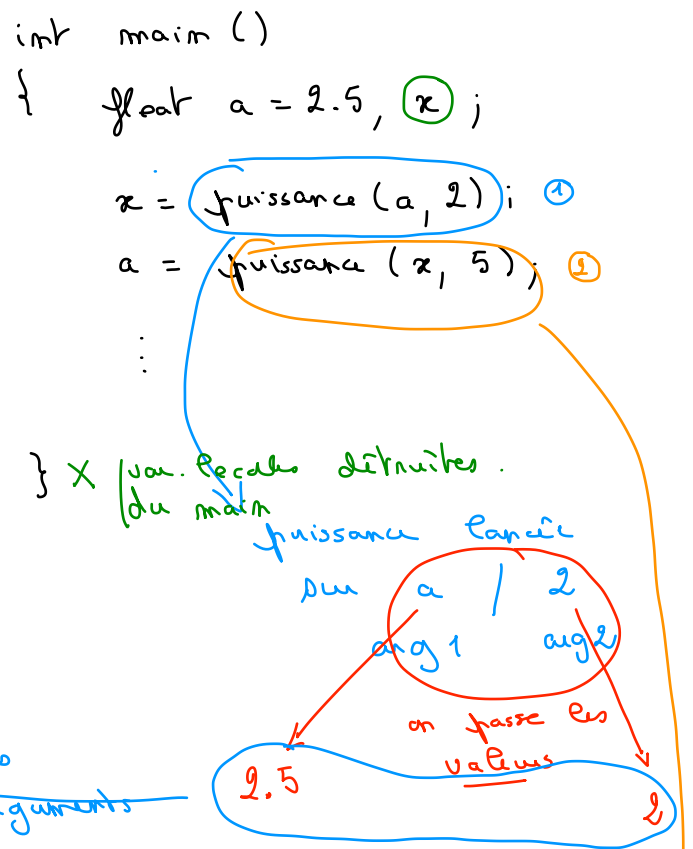 int main ()
{ float a = 2.5, x ;
x = puissance (a, 2) ; 1
a = puissance (x, 5) ; 2
⋮
} X var. locales détruites.
du main
puissance lancée
sur a / 2
arg 1 arg 2
on passe les
valeurs
2.5 2